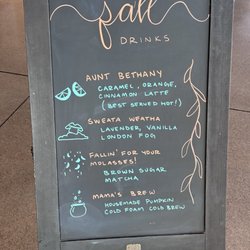 fall
DRINKS
AUNT BETHANY
CARAMEL, ORANGE,
CINNAMON LATTE
(BEST SERVED HOT!)
SWEATA WEATHA
LAVENDER, VANILLA
LONDON FOG
FALLIN' FOR YOUR
MOLASSES!
BROWN SUGAR
MATCHA
MAMA'S BREW
HOUSEMADE PUMPKIN
COLD FOAM COLD BREW